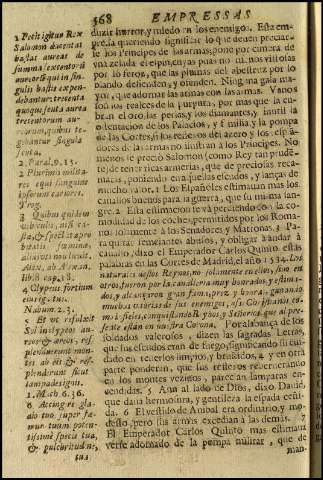 368 EMPRESSAS
1 Petitigitur Rex
Salomon ducentas
hastas aureas de
summa sexcentorum
aureorum qui in singulis
hastis expendebantur:
trecenta
quoque scuta aurea
trecentorum aureorum,
quibus tegebantur
singula
scuta.
2. Paral. 9. 15.
2 Plurimo militares
equi sanguine
hostium
Veg.
3 Quibus quidem
Alex. ab Alexan.
lib. cap. 18.
4 Clypeus fortium
eius ignitus.
Nahum. 2. 3.
5 Et ut refulsit
Sol in clypeos aureos
& aereos, resplenduerunt
montes
ab eis & resplenduerunt
sicut
lampades ignis.
1. Mach. 6. 36.
6 Accingere gladio
tuo super femur
tuum potentissime
specie tua,
& pulchritudine
tua
duzir horror, y miedo en los enemigos. Esta empresa
queriendo significar lo que deuen preciarse
los Principes de las armas; pone por cimera de
vna zelada el espin, cuyas puas no
por lo feroz, que las plumas del abestruz por lo
blando defienden, y ofenden. Ninguna gala mayor,
que adornar las armas con las armas. Vanos
son los realces de la purpura, por mas que la cubran
el oro, las perlas, y los diamantes, y inutil la
ostentacion de los Palacios, y familia, y la pompa
de las Cortes, si los reflexos del azero y los resplandores
de las armas no ilustran a los Principes. No
menos se preció Salomon (como Rey tan prudente)
de tener ricas armerias, que de preciosas recamaras,
poniendo en aquellas escudos, y lanças de
mucho valor. 1 Los Españoles estimauan mas los
cauallos buenos para la guerra, que su misma sangre.
2 Esta estimacion se va perdiendo con la comodidad
de los coches permitidos por los Romanos
solamente a los Senadores y Matronas. 3 Para
quitar semejantes abusos, y obligar a andar à
cauallo, dixo el Emperador Carlos Quinto estas
palabras en las Cortes de Madrid, el año 1534. Los
naturales destos Reynos, no solamente en ellos, sino en
otros, fueron por la caualleria muy honrados, y estimados,
y alcançaron gran fama, prez, y honra, ganando
muchas vitorias de sus enemigos, assi Christianos como
infieles, conquistando Reynos, y Señorios, que al presente
están en nuestra Corona. Por alabança de los
soldados valerosos, dizen las sagradas Letras,
que sus escudos eran de fuego, significando su cuidado
en tenerlos limpios, y bruñidos, 4 y en otra
parte ponderan, que sus reflexos reuerberando
en los montes vezinos, parecian lamparas encendidas.
5 Aun al lado de Dios, dixo Dauid,
que daua hermosura, y gentileza la espada ceñida.
6 El vestido de Anibal era ordinario, y modesto,
pero sus armas excedian a las demas. 7
El Emperador Carlos Quinto mas estimaua
verse adornado de la pompa militar, que de
man-